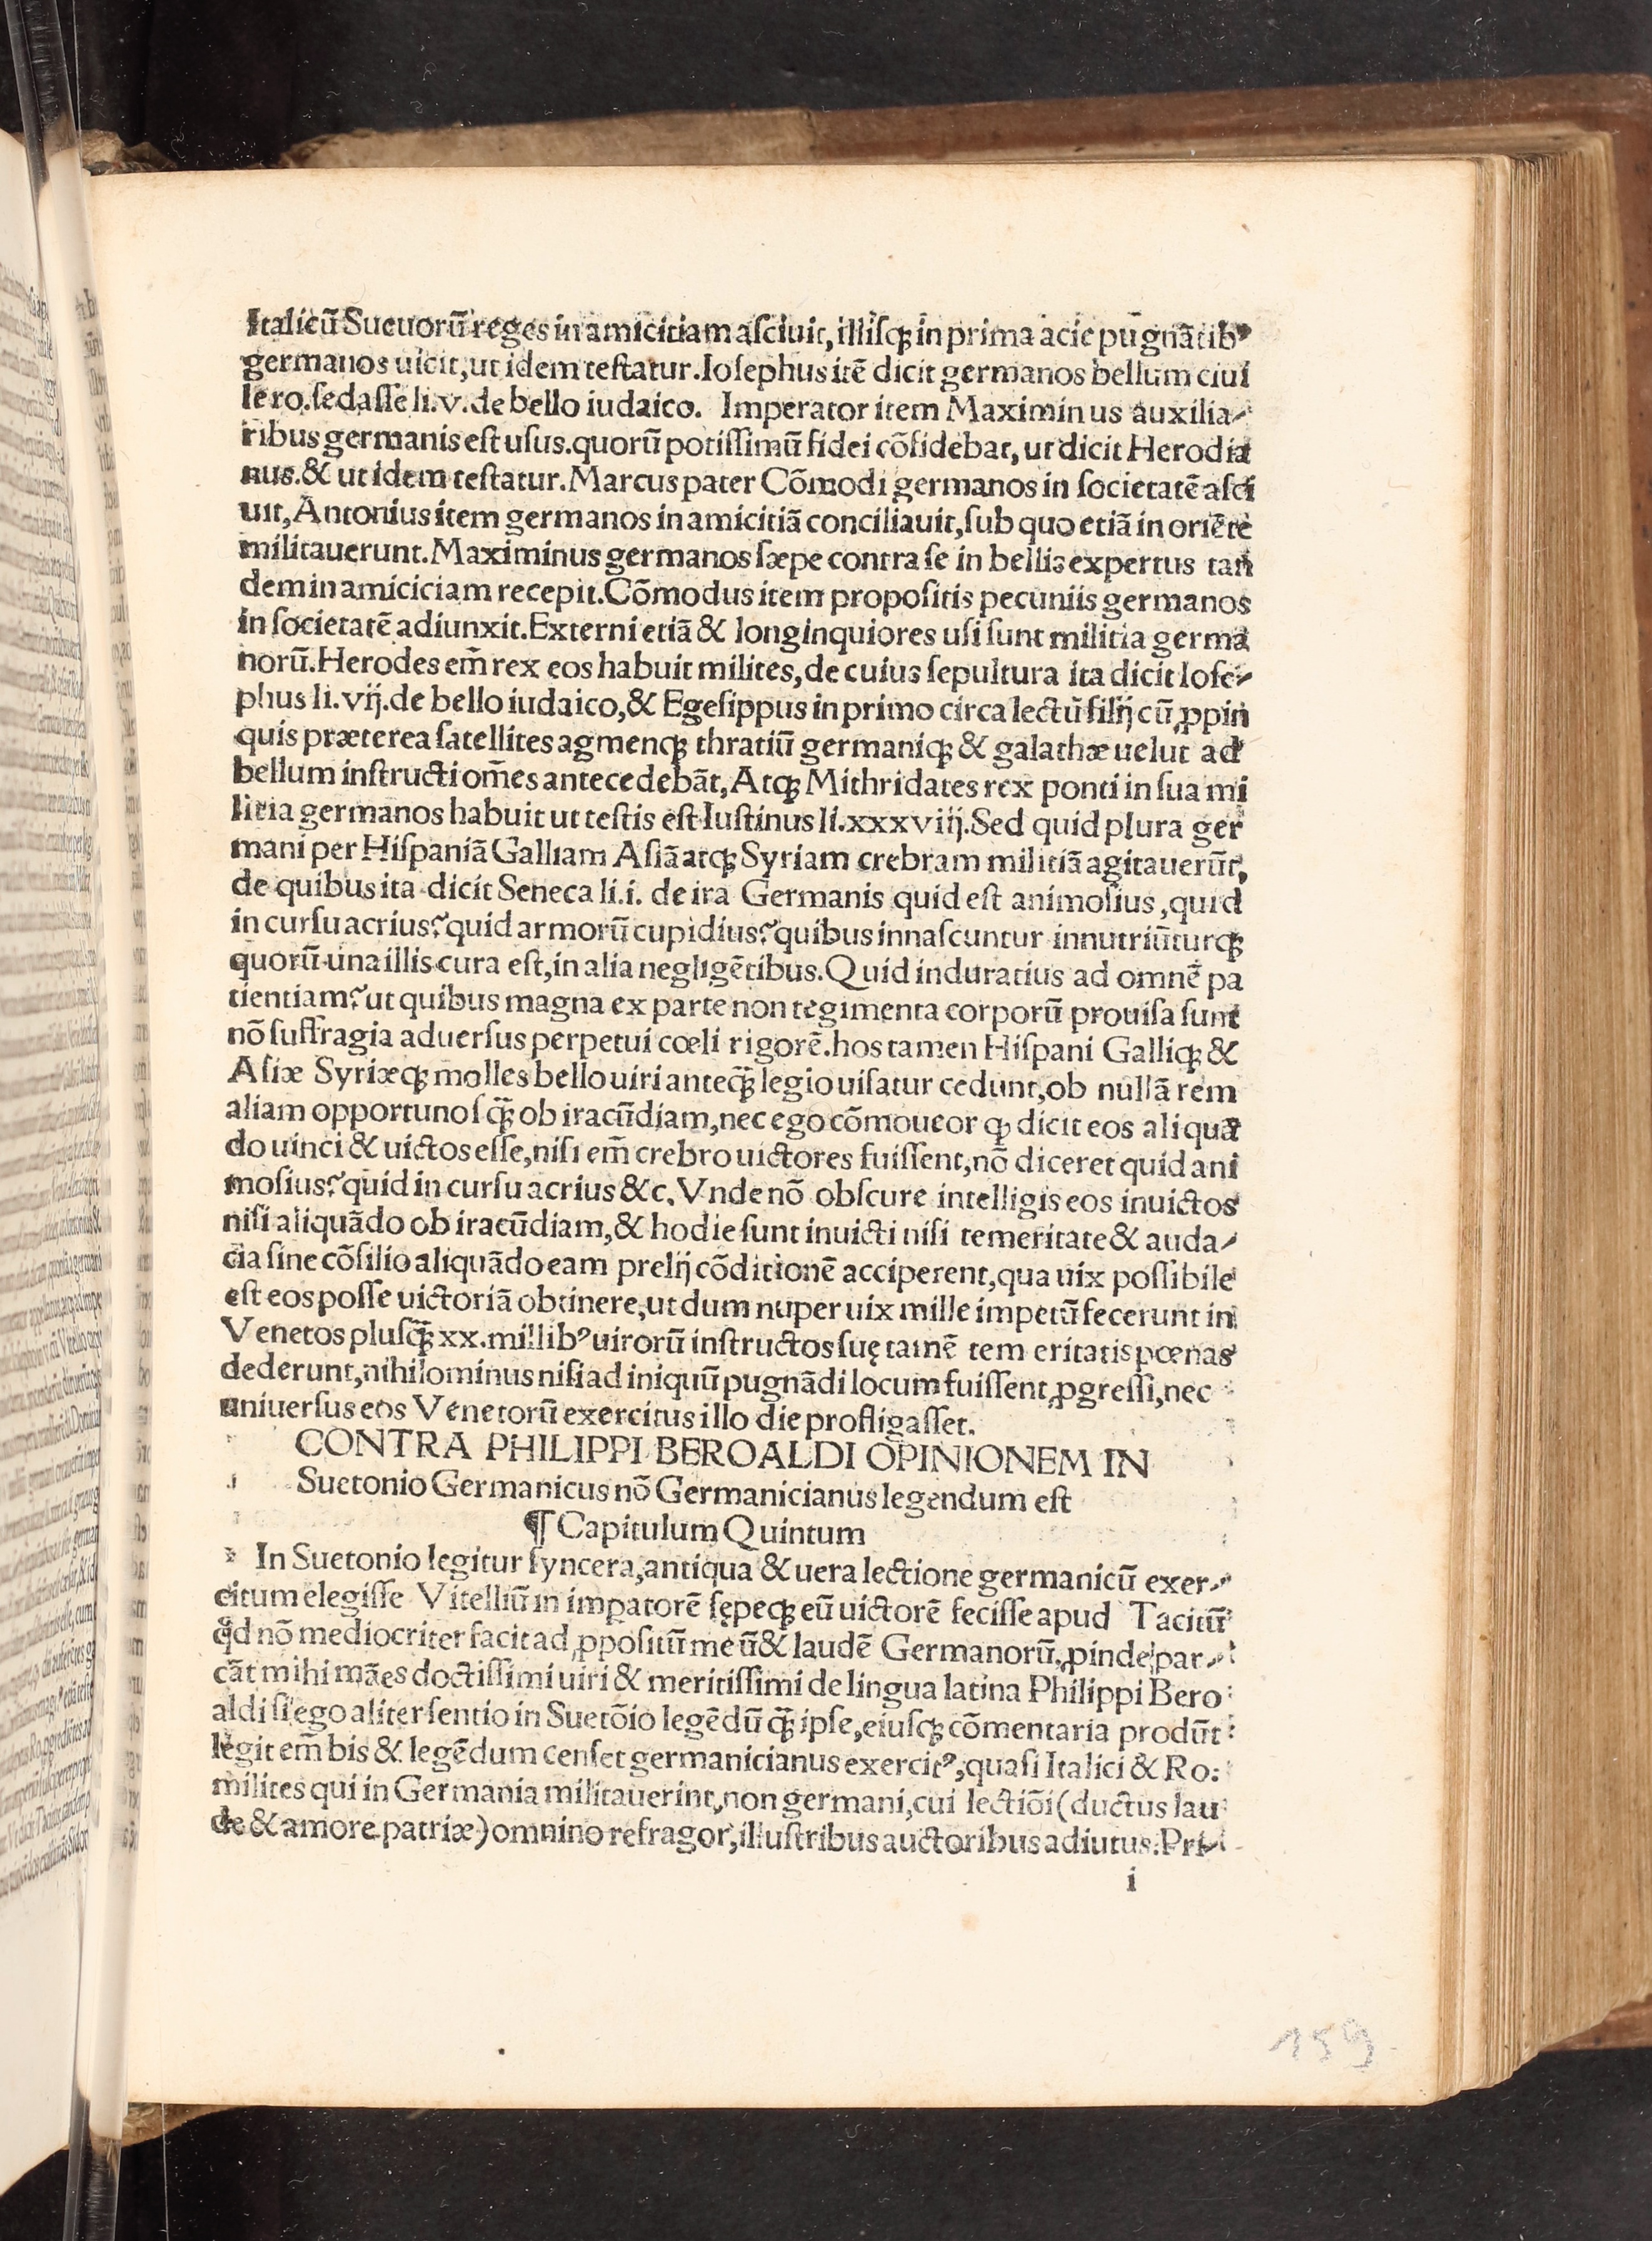 Italicū Sueuorū reges in amicitiam asciuit, illisqꝫ in prima acie pugnātibꝰ
germanos uicit, ut idem testatur. Iosephus itē dicit germanos bellum ciui
le ro. sedasse li. v. de bello iudaico. Imperator item Maximinus auxilia⸗
ribus germanis est usus. quorū potissimū fidei cōfidebat, ut dicit Herodia
nus. & ut idem testatur. Marcus pater Cōmodi germanos in societatē asci
uit, Antonius item germanos in amicitiā conciliauit, sub quo etiā in oriēte
militauerunt. Maximinus germanos sæpe contra se in bellis expertus tan
dem in amiciciam recepit. Cōmodus item propositis pecuniis germanos
in societatē adiunxit. Externi etiā & longinquiores usi sunt militia germa
norū. Herodes em̄ rex eos habuit milites, de cuius sepultura ita dicit Iose⸗
phus li. vij. de bello iudaico, & Egesippus in primo circa lectū filij cū ꝓpin
quis præterea satellites agmenqꝫ thratiū germaniqꝫ & galathæ uelut ad
bellum instructi om̄es antecedebāt, Atqꝫ Mithridates rex ponti in sua mi
litia germanos habuit ut testis est Iustinus li. xxxviij. Sed quid plura ger
mani per Hispaniā Galliam Asiā atqꝫ Syriam crebram militiā agitauerūt,
de quibus ita dicit Seneca li. i. de ira Germanis quid est animosius, quid
in cursu acrius? quid armorū cupidius? quibus innascuntur innutriūturqꝫ
quorū una illis cura est, in alia negligētibus. Quid induratius ad omnē pa
tientiam? ut quibus magna ex parte non tegimenta corporū prouisa sunt
nō suffragia aduersus perpetui cœli rigorē. hos tamen Hispani Galliqꝫ &
Asiæ Syriæqꝫ molles bello uiri anteqꝫ̄ legio uisatur cedunt, ob nullā rem
aliam opportunos qꝫ̄ ob iracūdiam, nec ego cōmoueor ꝙ dicit eos aliquā
do uinci & uictos esse, nisi em̄ crebro uictores fuissent, nō diceret quid ani
mosius? quid in cursu acrius &c. Vnde nō obscure intelligis eos inuictos
nisi aliquādo ob iracūdiam, & hodie sunt inuicti nisi temeritate & auda⸗
cia sine cōsilio aliquādo eam prelij cōditionē acciperent, qua uix possibile
est eos posse uictoriā obtinere, ut dum nuper uix mille impetū fecerunt in
Venetos plusqꝫ̄ xx. millibꝰ uirorū instructos suę tamē temeritatis pœnas
dederunt, nihilominus nisi ad iniquū pugnādi locum fuissent ꝓgressi, nec
uniuersus eos Venetorū exercitus illo die profligasset.
CONTRA PHILIPPI BEROALDI OPINIONEM IN
Suetonio Germanicus nō Germanicianus legendum est
¶ Capitulum Quintum
In Suetonio legitur syncera, antiqua & uera lectione germanicū exer⸗
citum elegisse Vitelliū in imꝑatorē sępeqꝫ eū uictorē fecisse apud Tacitū
qd̄ nō mediocriter facit ad ꝓpositū meū & laudē Germanorū, ꝓinde par⸗
cāt mihi māes doctissimi uiri & meritissimi de lingua latina Philippi Bero
aldi si ego aliter sentio in Suetōio legēdū qꝫ̄ ipse, eiusqꝫ cōmentaria produ͞t
legit em̄ bis & legēdum censet germanicianus exercitꝰ, quasi Italici & Ro.
milites qui in Germania militauerint, non germani, cui lectiōi (ductus lau
de & amore patriæ) omnino refragor, illustribus auctoribus adiutus. Pri⸗
i
159